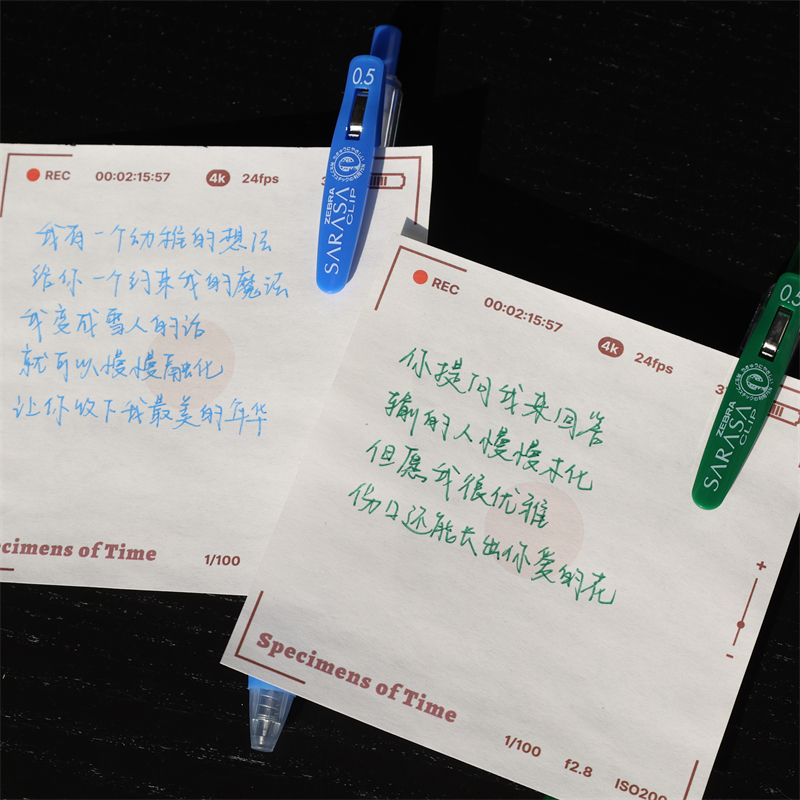 0.5
ZEBRA
SARASA
CLIP
REC 00:02:15:57 4K 24fps
我有一个幼稚的想法
给你一个约束我的魔法
我变成雪人的话
就可以慢慢融化
让你放下我最美的年华
ecimens of Time 1/100
0.5
ZEBRA
SARASA
CLIP
REC 00:02:15:57 4K 24fps
你提问我来回答
输的人慢慢木化
但愿我很优雅
伤口还能长出你爱的花
+
-
Specimens of Time
1/100 f2.8 ISO200